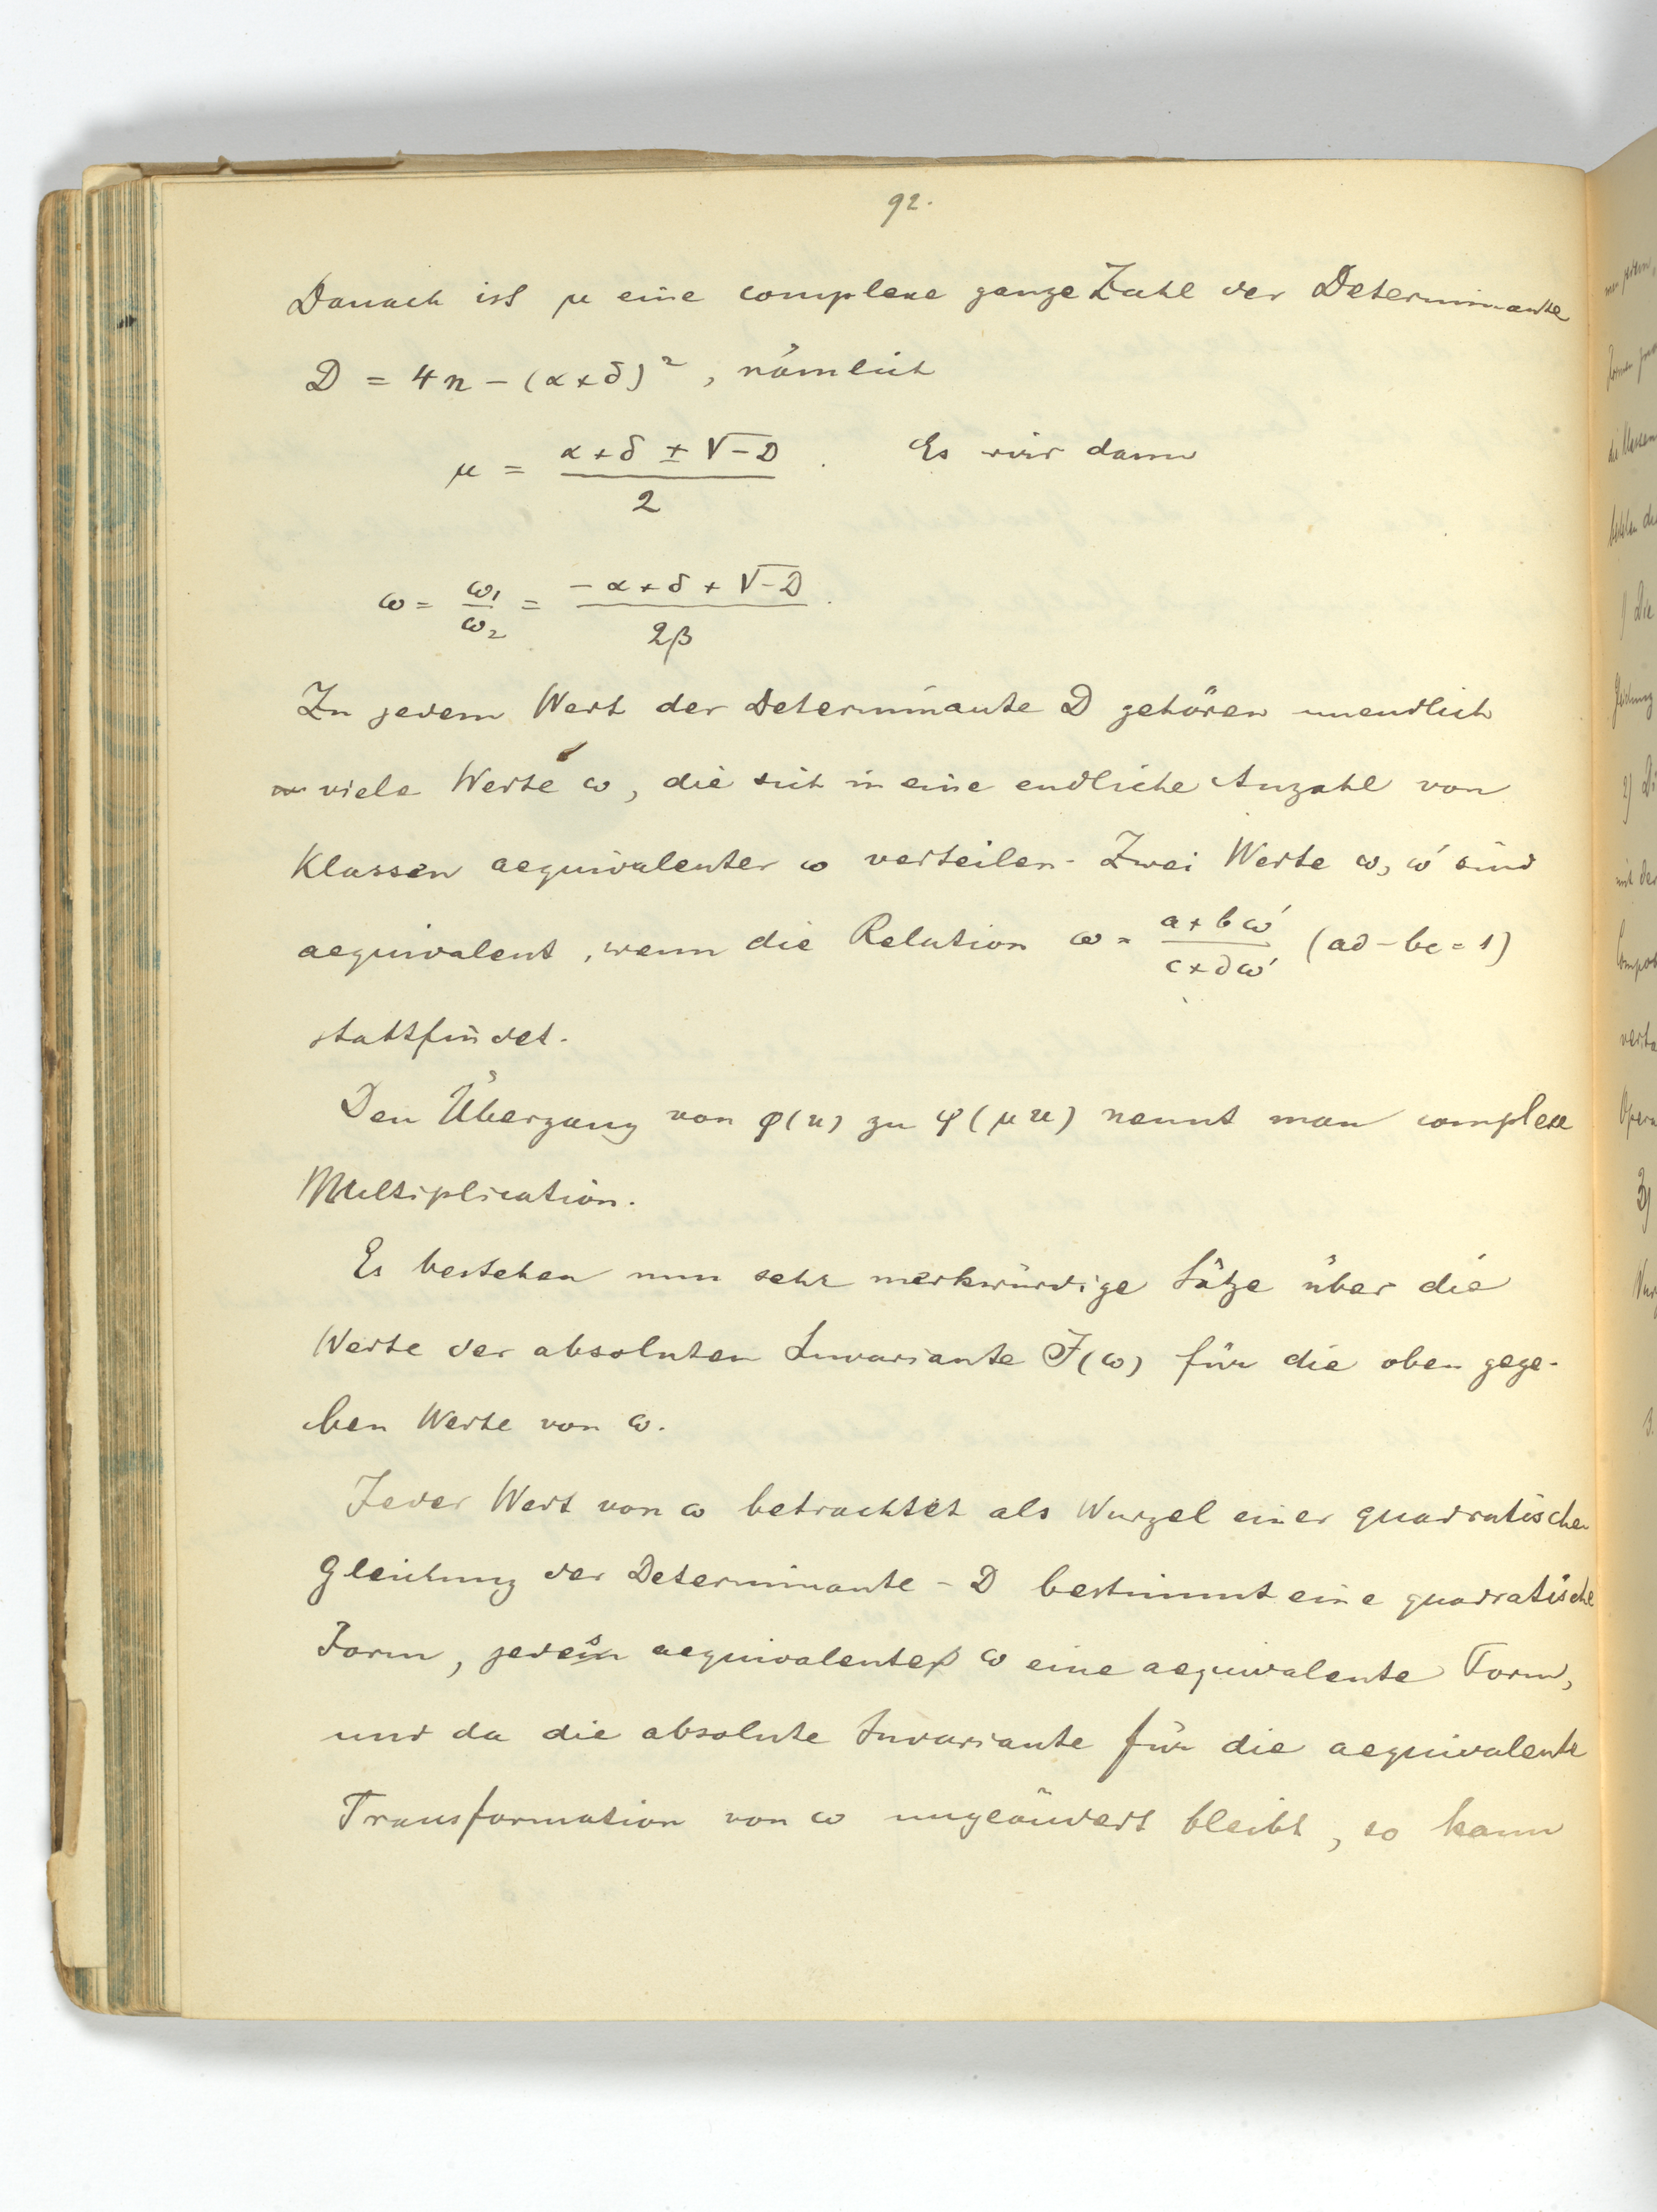 92.
Danach ist μ eine complexe ganze Zahl der Determinante
D = 4n − (α+δ)², nämlich
μ = (α+δ ± √−D)/2 . Es wir dann
ω = ω₁/ω₂ = (−α+δ+√−D)/2β .
Zu jedem Wert der Determinante D gehören unendlich
viele Werte ω, die sich in eine endliche Anzahl von
Klassen aequivalenter ω verteilen. Zwei Werte ω, ω' sind
aequivalent, wenn die Relation ω = (a+bω')/(c+dω') (ad−bc=1)
stattfindet.
Den Übergang von φ(u) zu φ(μu) nennt man complexe
Multiplication.
Es bestehen nun sehr merkwürdige Sätze über die
Werte der absoluten Invariante J(ω) für die oben gege-
ben Werte von ω.
Jeder Wert von ω betrachtet als Wurzel einer quadratischen
Gleichung der Determinante −D bestimmt eine quadratische
Form, jedes aequivalente ω eine aequivalente Form,
und da die absolute Invariante für die aequivalente
Transformation von ω ungeändert bleibt, so kann
1) Die
2) Di
mit der
3)